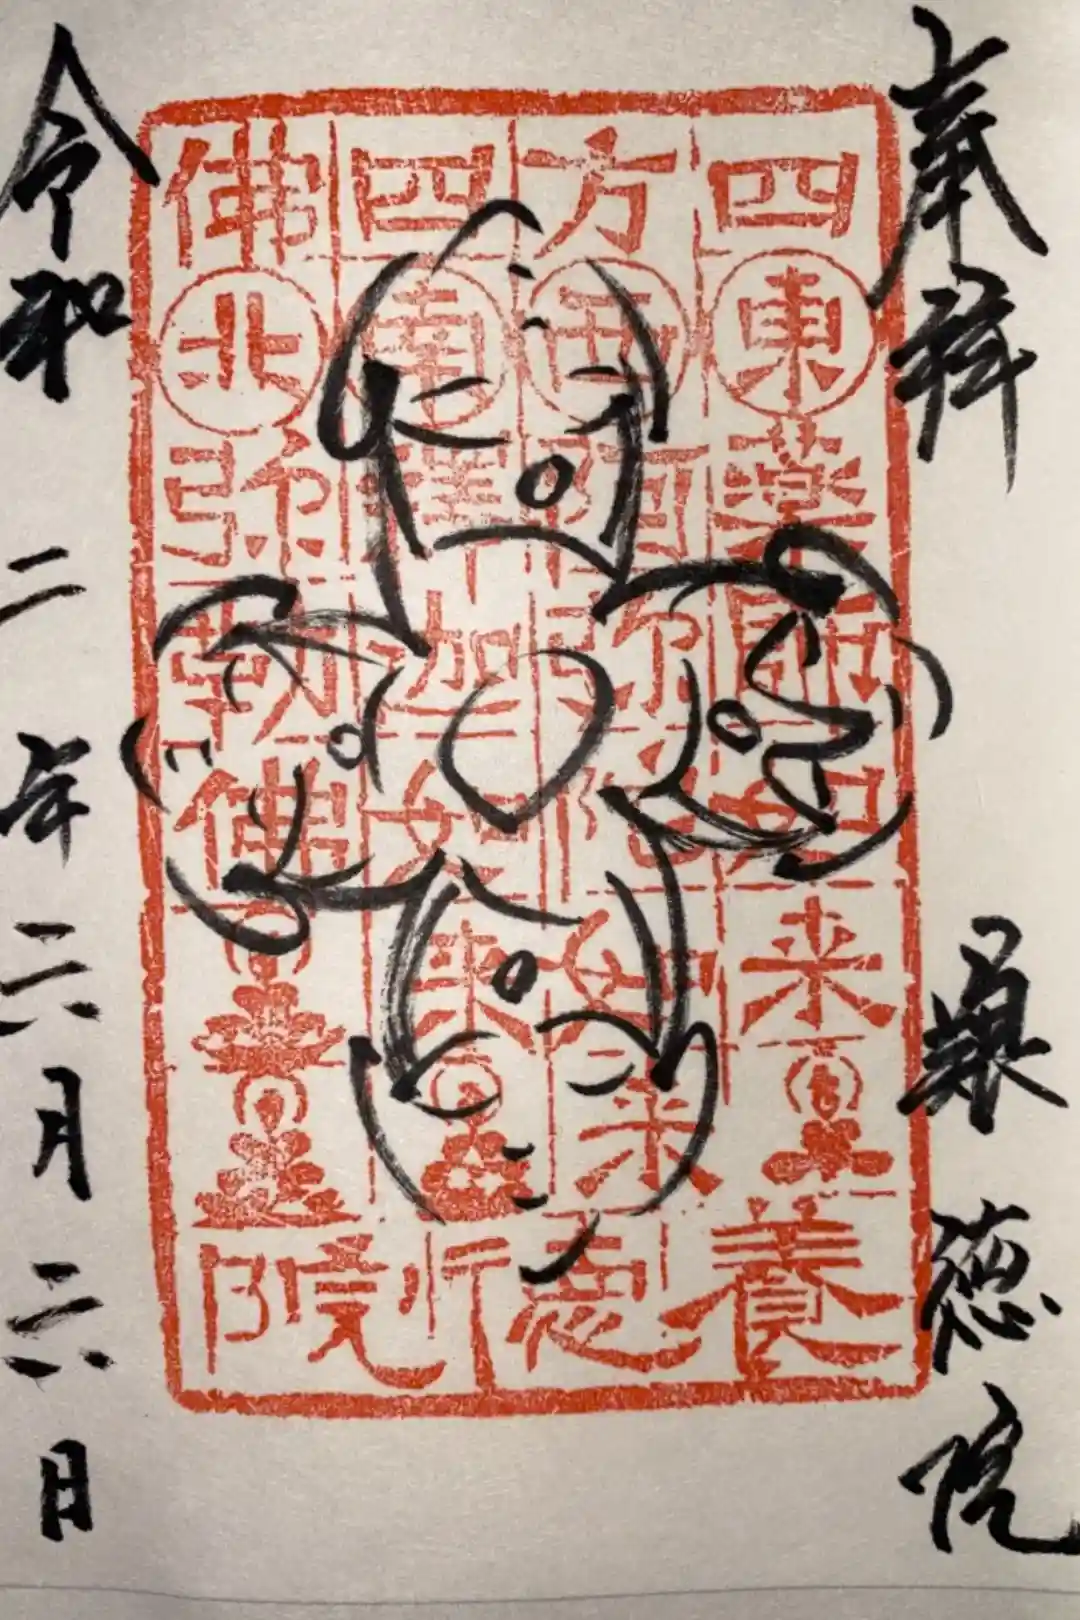 奉拝
養徳院
四方四佛
東藥師如来
西阿弥陀如来
南釋迦如来
北弥勒佛
養徳院
令和二年六月六日